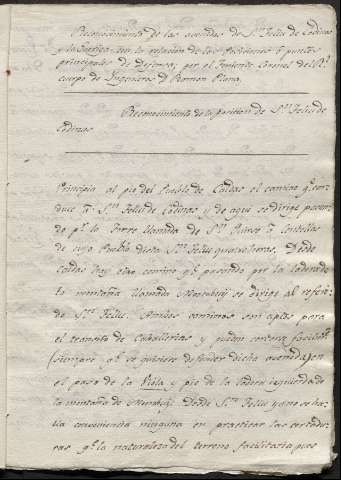 Reconocimiento de las avenidas de Sn. Feliu de Codinas
y la Garriga con la relacion de las Posiciones o puntos
principales de defensa; por el Teniente Coronel del Rl.
cuerpo de Ingenieros Dn. Ramon Plana.
Reconocimiento de la posicion de Sn. Feliu de
Codinas
Principia al pie del Pueblo de Caldas el camino qe. con-
duce à Sn. Feliu de Codinas y de aqui se dirige pasan-
do pr. la Torre llamada de Sn. à Centellas
de cuyo Pueblo dista Sn. Feliu quatro horas. Desde
Caldas hay otro camino qe. pasando por la ladera de
la montaña llamada se dirige al referi-
do Sn. Feliu. Ambos caminos son aptos para
el transito de Caballerias y pueden
siempre qe. se quisiere defender dicha avenida en
el paso de la Viola y pie de la ladera izquierda de
la montaña de Desde Sn. Feliu ya no se ha-
lla conveniencia ninguna en practicar las cortadu-
ras qe. la naturaleza del terreno facilitaria pues